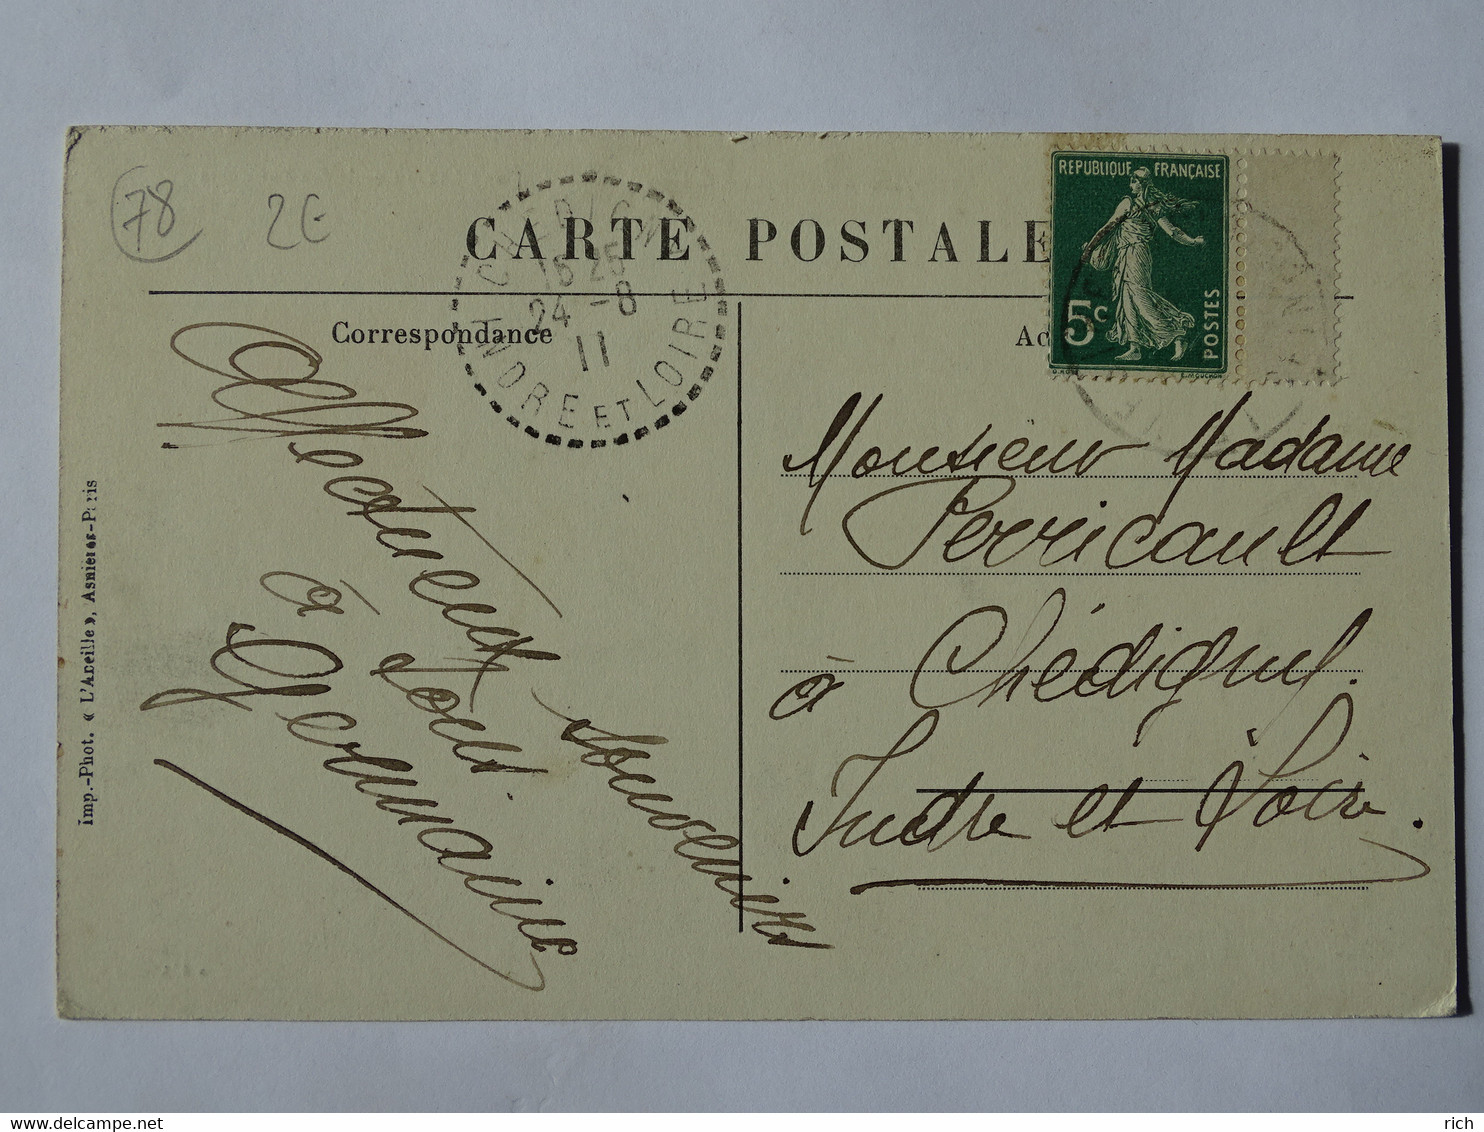 78
2€
CARTE POSTALE
Correspondance
Ac
REPUBLIQUE FRANÇAISE
5c
POSTES
CHEDIGNY
24 -8
11
INDRE ET LOIRE
Affectueux souvenirs
à tous.
Germaine
Monsieur Madame
Perricault
à Chédigny.
Indre et Loire.
Imp.-Phot. « L'Abeille », Asnières-Paris
www.delcampe.net
rich